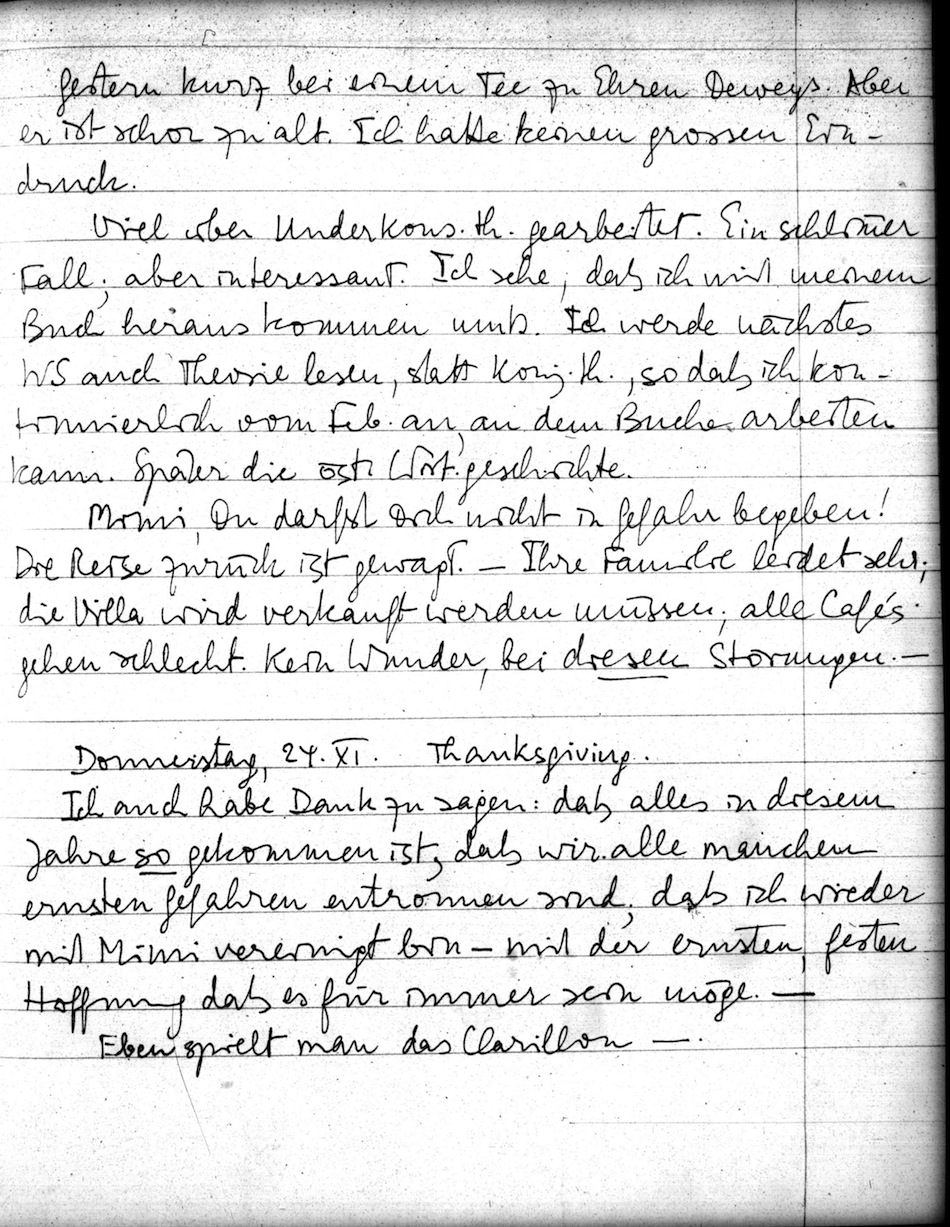 gestern kurz bei einem Tee zu Ehren Deweys. Aber
er ist schon zu alt. Ich hatte keinen grossen Ein-
druck.
Viel über Underkons.th. gearbeitet. Ein schlimmer
Fall; aber interessant. Ich sehe, daß ich mit meinem
Buch herauskommen muß. Ich werde nächstes
WS auch Theorie lesen, statt Konj.th., so daß ich kon-
tinuierlich vom Feb. an, an dem Buche arbeiten
kann. Später die öst. Wirt.geschichte.
Mimi, Du darfst Dich nicht in Gefahr begeben!
Die Reise zurück ist gewagt. — Ihre Familie leidet sehr;
die Villa wird verkauft werden müssen; alle Cafés
gehen schlecht. Kein Wunder, bei diesen Störungen. —
Donnerstag, 24. XI. Thanksgiving.
Ich auch habe Dank zu sagen: daß alles in diesem
Jahre so gekommen ist, daß wir alle manchen
ernsten Gefahren entronnen sind, daß ich wieder
mit Mimi vereinigt bin — mit der ernsten, festen
Hoffnung daß es für immer sein möge. —
Eben spielt man das Clarillon —.